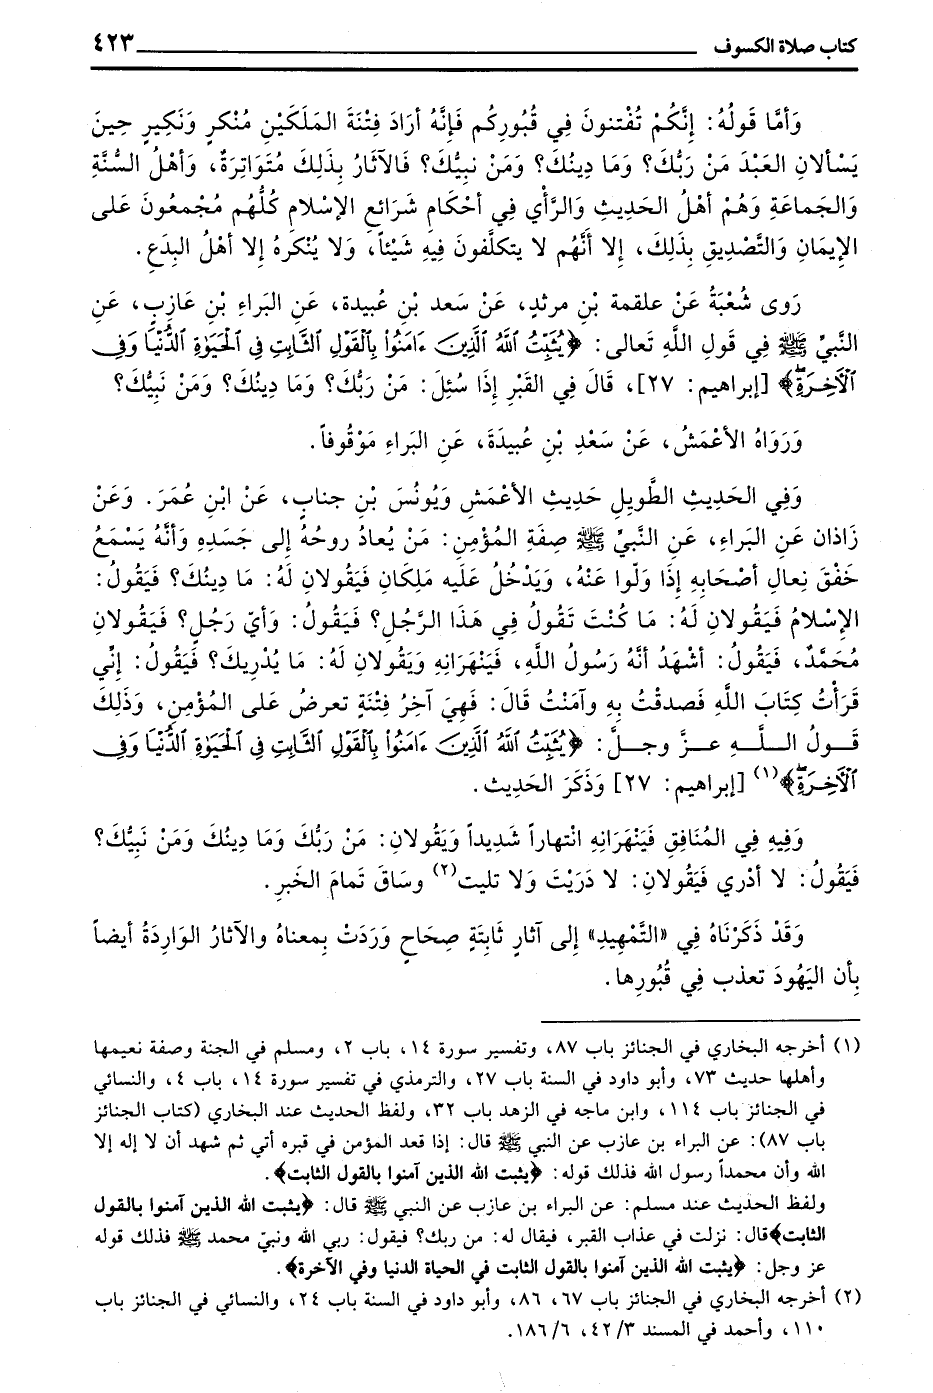 كتاب صلاة الكسوف ٤٢٣
وَأمَّا قَولُهُ: إنَّكُمْ تُفْتنونَ فِي قُبُورِكُم فَإنَّهُ أرَادَ فِتْنَةَ المَلَكَيْنِ مُنْكرٍ وَنَكِيرٍ حِينَ
يَسألانِ العَبْدَ مَنْ رَبُّكَ؟ وَمَا دِينُكَ؟ وَمَنْ نبِيُّكَ؟ فَالآثارُ بِذَلِكَ مُتَوَاتِرَةٌ، وَأهْلُ السُّنَّةِ
وَالجَماعَةِ وَهُمْ أهْلُ الحَدِيثِ وَالرَّأْي فِي أحْكَامِ شَرَائعِ الإسْلامِ كُلُّهُم مُجْمعُونَ عَلى
الإيمَانِ وَالتَّصْدِيقِ بِذَلِكَ، إلا أنَّهُم لا يتكلَّفونَ فِيهِ شَيْئاً، وَلا يُنْكرهُ إلا أهْلُ البِدَعِ.
رَوى شُعْبَةُ عَنْ علقمة بْنِ مرثدٍ، عَنْ سَعد بْنِ عُبيدة، عَنِ البَراء بْنِ عَازِبٍ، عَنِ
النَّبيِّ ﷺ فِي قَولِ اللَّهِ تَعالى: ﴿يُثَبِّتُ ٱللَّهُ ٱلَّذِينَ ءَامَنُوا۟ بِٱلْقَوْلِ ٱلثَّابِتِ فِى ٱلْحَيَوٰةِ ٱلدُّنْيَا وَفِى
ٱلْـَٔاخِرَةِۖ﴾ [إبراهيم: ٢٧]، قَالَ فِي القَبْرِ إذَا سُئلَ: مَنْ رَبُّكَ؟ وَمَا دِينُكَ؟ وَمَنْ نبِيُّكَ؟
وَرَوَاهُ الأعْمَشُ، عَنْ سَعْدِ بْنِ عُبيدَةَ، عَنِ البَراءِ مَوْقُوفاً.
وَفِي الحَدِيثِ الطَّوِيلِ حَدِيثِ الأعْمَشِ وَيُونُسَ بْنِ جنابٍ، عَنْ ابْنِ عُمَرَ. وَعَنْ
زَاذان عَنِ البَراءِ، عَنِ النَّبيِّ ﷺ صِفَةِ المُؤْمِنِ: مَنْ يُعادُ روحُهُ إلى جَسَدِهِ وَأنَّهُ يَسْمَعُ
خَفْقَ نِعالِ أصْحَابِهِ إذَا وَلّوا عَنْهُ، وَيَدْخُلُ عَلَيه مَلِكانِ فَيَقُولانِ لَهُ: مَا دِينُكَ؟ فَيَقُولُ:
الإسْلامُ فَيَقُولانِ لَهُ: مَا كُنْتَ تَقُولُ فِي هَذَا الرَّجُلِ؟ فَيَقُولُ: وَأيّ رَجُلٍ؟ فَيَقُولانِ
مُحَمَّدٌ، فَيَقُولُ: أشْهَدُ أنَّهُ رَسُولُ اللَّهِ، فَيَنْهَرَانِهِ وَيَقُولانِ لَهُ: مَا يُدْرِيكَ؟ فَيَقُولُ: إنِّي
قَرَأْتُ كِتَابَ اللَّهِ فَصدقْتُ بِهِ وآمَنْتُ قَالَ: فَهِيَ آخِرُ فِتْنَةٍ تعرضُ عَلى المُؤْمِنِ، وَذَلِكَ
قَولُ اللَّهِ عزَّ وجلَّ: ﴿يُثَبِّتُ ٱللَّهُ ٱلَّذِينَ ءَامَنُوا۟ بِٱلْقَوْلِ ٱلثَّابِتِ فِى ٱلْحَيَوٰةِ ٱلدُّنْيَا وَفِى
ٱلْـَٔاخِرَةِۖ﴾(١) [إبراهيم: ٢٧] وَذَكَرَ الحَدِيث.
وَفِيهِ فِي المُنَافِقِ فَيَنْهَرَانِهِ انْتهاراً شَدِيداً وَيَقُولانِ: مَنْ رَبُّكَ وَمَا دِينُكَ وَمَنْ نَبِيُّكَ؟
فَيَقُولُ: لا أدْرِي فَيَقُولانِ: لا دَرَيْتَ وَلا تليت(٢) وسَاقَ تَمامَ الخَبرِ.
وَقَدْ ذَكَرْنَاهُ فِي «التَّمْهِيدِ» إلى آثارٍ ثَابتَةٍ صِحَاحٍ وَرَدَتْ بِمعناهُ والآثارُ الوَارِدَةُ أيضاً
بِأن اليَهُودَ تعذب فِي قُبُورِها.
(١) أخرجه البخاري في الجنائز باب ٨٧، وتفسير سورة ١٤، باب ٢، ومسلم في الجنة وصفة نعيمها
وأهلها حديث ٧٣، وأبو داود في السنة باب ٢٧، والترمذي في تفسير سورة ١٤، باب ٤، والنسائي
في الجنائز باب ١١٤، وابن ماجه في الزهد باب ٣٢، ولفظ الحديث عند البخاري (كتاب الجنائز
باب ٨٧): عن البراء بن عازب عن النبي ﷺ قال: إذا قعد المؤمن في قبره أتي ثم شهد أن لا إله إلا
الله وأن محمداً رسول الله فذلك قوله: ﴿يثبت الله الذين آمنوا بالقول الثابت﴾.
ولفظ الحديث عند مسلم: عن البراء بن عازب عن النبي ﷺ قال: ﴿يثبت الله الذين آمنوا بالقول
الثابت﴾قال: نزلت في عذاب القبر، فيقال له: من ربك؟ فيقول: ربي الله ونبيّ محمد ﷺ فذلك قوله
عز وجل: ﴿يثبت الله الذين آمنوا بالقول الثابت في الحياة الدنيا وفي الآخرة﴾.
(٢) أخرجه البخاري في الجنائز باب ٦٧، ٨٦، وأبو داود في السنة باب ٢٤، والنسائي في الجنائز باب
١١٠، وأحمد في المسند ٤٢/٣، ١٨٦/٦.